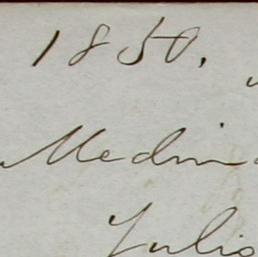 1850.
Medin
Julio